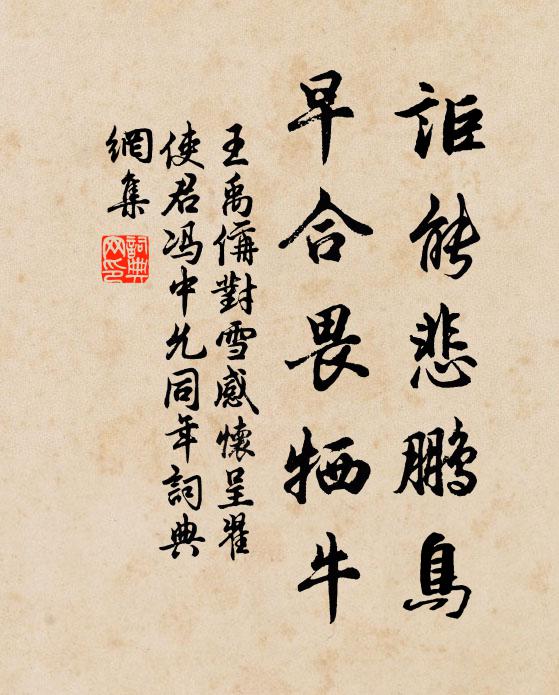 詎能悲鵬鳥
早合畏牺牛
王禹偁對雪感懷呈翟
使君冯中允同年詞典
網集
詞典
网印